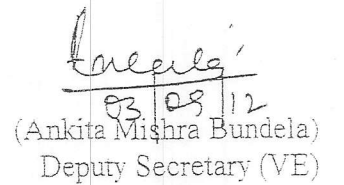 03/09/12
(Ankita Mishra Bundela)
Deputy Secretary (VE)